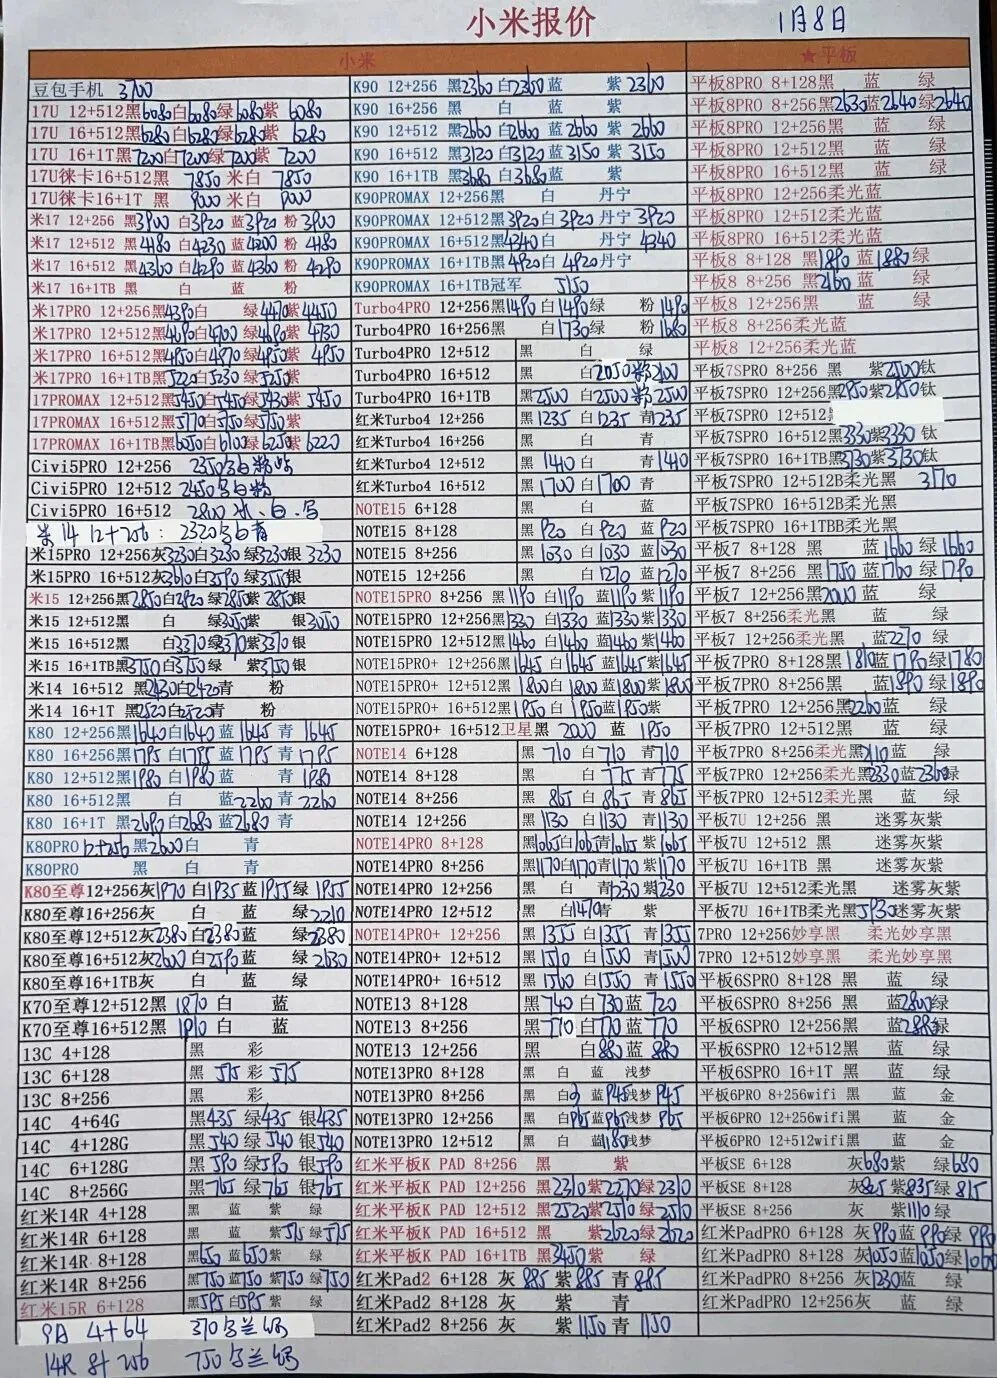 小米报价
1月8日
小米
豆包手机 3700
17U 12+512黑6080白6080绿6080紫 6080
17U 16+512黑6280白6280绿6280紫 6280
17U 16+1T黑7200白7200绿7200紫 7200
17U徕卡16+512黑 7850 米白 7850
17U徕卡16+1T 黑 米白
米17 12+256 黑3900 白3920 蓝3920 粉 3900
米17 12+512 黑4180 白4230 蓝4200 粉 4180
米17 16+512 黑4360 白4290 蓝4360 粉 4290
米17 16+1TB 黑 白 蓝 粉
米17PRO 12+256黑4390白 绿4470紫4450
米17PRO 12+512黑4690白4700绿4690紫4730
米17PRO 16+512黑4950白4970绿4950紫4950
米17PRO 16+1TB黑5220白5230绿5250紫
17PROMAX 12+512黑5450白5450绿5430紫5450
17PROMAX 16+512黑5770白5750绿5750紫
17PROMAX 16+1TB黑6050白6100绿6250紫6220
Civi5PRO 12+256 2350
Civi5PRO 12+512 2450
Civi5PRO 16+512 2800
米14 12+256: 2320
米15PRO 12+256灰3230白3230绿3230银 3230
米15PRO 16+512灰3610白3590绿3555银
米15 12+256黑2850白2920绿2850紫 2850银
米15 12+512黑 白 绿3050紫 银3050
米15 16+512黑 白3370绿3370紫3370银
米15 16+1TB黑3750白3750绿 紫3750银
米14 16+512 黑2430白2420青 粉
米14 16+1T 黑2520白2520青 粉
K80 12+256黑1640白1640蓝1645青1645
K80 16+256黑1795白1795蓝1795青1795
K80 12+512黑1980白1980蓝 青1980
K80 16+512黑 白 蓝2260青2260
K80 16+1T 黑2690白2680蓝2680青
K80PRO 12+256黑2600白 青
K80PRO 黑 白 青
K80至尊12+256灰1970 白1935蓝1955绿1955
K80至尊16+256灰 白 蓝 绿2210
K80至尊12+512灰2380白2380蓝 绿2380
K80至尊16+512灰2600白2590蓝 绿2630
K80至尊16+1TB灰 白 蓝 绿
K70至尊12+512黑 1870 白 蓝
K70至尊16+512黑 1910 白 蓝
13C 4+128 黑 彩
13C 6+128 黑 515 彩 515
13C 8+256 黑 彩
14C 4+64G 黑435 绿435 银435
14C 4+128G 黑540 绿540 银540
14C 6+128G 黑590 绿590 银590
14C 8+256G 黑765 绿765 银765
红米14R 4+128 黑 蓝 紫 绿
红米14R 6+128 黑 蓝 紫515绿515
红米14R 8+128 黑650 蓝650紫 绿
红米14R 8+256 黑750蓝750紫750绿750
红米15R 6+128 黑595白595紫 绿
9A 4+64 370
14R 8+256 750
K90 12+256 黑2360白2360蓝 紫2360
K90 16+256 黑 白 蓝 紫
K90 12+512 黑2660白2660蓝2660紫2660
K90 16+512 黑3120白3120蓝3150紫3150
K90 16+1TB 黑3680白3680蓝 紫
K90PROMAX 12+256黑 白 丹宁
K90PROMAX 12+512黑3920白3920丹宁3920
K90PROMAX 16+512黑4340白 丹宁4340
K90PROMAX 16+1TB黑4920白4920丹宁
K90PROMAX 16+1TB冠军 5150
Turbo4PRO 12+256黑1490白1490绿 粉1490
Turbo4PRO 16+256黑 白1730绿 粉1680
Turbo4PRO 12+512 黑 白 绿
Turbo4PRO 16+512 黑 白2050粉2100
Turbo4PRO 16+1TB 黑2500白2500粉2500
红米Turbo4 12+256 黑1235白1235青1235
红米Turbo4 16+256 黑 白 青
红米Turbo4 12+512 黑1410白 青1410
红米Turbo4 16+512 黑1700白1700青
NOTE15 6+128 黑 白 蓝
NOTE15 8+128 黑920 白920 蓝920
NOTE15 8+256 黑1030 白1030蓝1030
NOTE15 12+256 黑 白1270蓝1270
NOTE15PRO 8+256 黑1190白1190蓝1190紫1190
NOTE15PRO 12+256黑1330白1330蓝1330紫1330
NOTE15PRO 12+512黑1460白1460蓝1460紫1460
NOTE15PRO+ 12+256黑1645白1645蓝1645紫1645
NOTE15PRO+ 12+512黑1800白1800蓝1800紫1800
NOTE15PRO+ 16+512黑1950白1950蓝1950紫
NOTE15PRO+ 16+512卫星黑 2000 蓝 1950
NOTE14 6+128 黑 710白 710 青710
NOTE14 8+128 黑 白 775青775
NOTE14 8+256 黑 865白865青865
NOTE14 12+256 黑1130白1130青1130
NOTE14PRO 8+128 黑1065白1065青1065紫1065
NOTE14PRO 8+256 黑1170白1170青1170紫1170
NOTE14PRO 12+256 黑 白 青1230紫1230
NOTE14PRO 12+512 黑 白1470青 紫
NOTE14PRO+ 12+256 黑1355白1355青1355
NOTE14PRO+ 12+512 黑1510白1500青1500
NOTE14PRO+ 16+512 黑1560白1550青1550
NOTE13 8+128 黑740白730蓝720
NOTE13 8+256 黑 白770蓝770
NOTE13 12+256 黑 白880蓝 880
NOTE13PRO 8+128 黑 白 蓝 浅梦
NOTE13PRO 8+256 黑 白 蓝945浅梦945
NOTE13PRO 12+256 黑 白965蓝965浅梦965
NOTE13PRO 12+512 黑 白 蓝1180浅梦
红米平板K PAD 8+256 黑 紫
红米平板K PAD 12+256 黑2310紫2270绿2310
红米平板K PAD 12+512 黑2520紫2510绿2510
红米平板K PAD 16+512 黑 紫2620绿2620
红米平板K PAD 16+1TB 黑3450紫 绿
红米Pad2 6+128 灰 885 紫885 青885
红米Pad2 8+128 灰 紫 青
红米Pad2 8+256 灰 紫1150青1150
★平板
平板8PRO 8+128黑 蓝 绿
平板8PRO 8+256黑2630蓝2640绿2640
平板8PRO 12+256黑 蓝 绿
平板8PRO 12+512黑 蓝 绿
平板8PRO 16+512黑 蓝 绿
平板8PRO 12+256柔光蓝
平板8PRO 12+512柔光蓝
平板8PRO 16+512柔光蓝
平板8 8+128 黑1890蓝1880绿
平板8 8+256 黑2160蓝 绿
平板8 12+256 黑 蓝 绿
平板8 8+256柔光蓝
平板8 12+256柔光蓝
平板7SPRO 8+256 黑 紫2500钛
平板7SPRO 12+256黑2950紫2850钛
平板7SPRO 12+512
平板7SPRO 16+512黑3330紫3330钛
平板7SPRO 16+1TB黑3730紫3730钛
平板7SPRO 12+512B柔光黑 3170
平板7SPRO 16+512B柔光黑
平板7SPRO 16+1TBB柔光黑
平板7 8+128 黑 蓝1660绿1660
平板7 8+256 黑1750蓝1760绿1790
平板7 12+256 黑2000蓝 绿
平板7 8+256柔光黑 蓝 绿
平板7 12+256柔光黑 蓝2270绿
平板7PRO 8+128黑1810蓝1790绿1780
平板7PRO 8+256黑 蓝1890绿1890
平板7PRO 12+256黑2260蓝 绿
平板7PRO 12+512黑 蓝 绿
平板7PRO 8+256柔光黑2110蓝 绿
平板7PRO 12+256柔光黑2330蓝2360绿
平板7PRO 12+512柔光黑 蓝 绿
平板7U 12+256 黑 迷雾灰紫
平板7U 12+512 黑 迷雾灰紫
平板7U 16+1TB 黑 迷雾灰紫
平板7U 12+512柔光黑 迷雾灰紫
平板7U 16+1TB柔光黑5930迷雾灰紫
7PRO 12+256妙享黑 柔光妙享黑
7PRO 12+512妙享黑 柔光妙享黑
平板6SPRO 8+128 黑 蓝 绿
平板6SPRO 8+256 黑 蓝2800绿
平板6SPRO 12+256黑 蓝2880绿
平板6SPRO 12+512黑 蓝 绿
平板6SPRO 16+1T 黑 蓝 绿
平板6PRO 8+256wifi 黑 蓝 金
平板6PRO 12+256wifi黑 蓝 金
平板6PRO 12+512wifi黑 蓝 金
平板SE 6+128 灰680紫 绿680
平板SE 8+128 灰825 紫835绿815
平板SE 8+256 灰 紫1110绿
红米PadPRO 6+128 灰990蓝990绿990
红米PadPRO 8+128 灰1050蓝1050绿1060
红米PadPRO 8+256 灰1230蓝 绿
红米PadPRO 12+256灰 蓝 绿